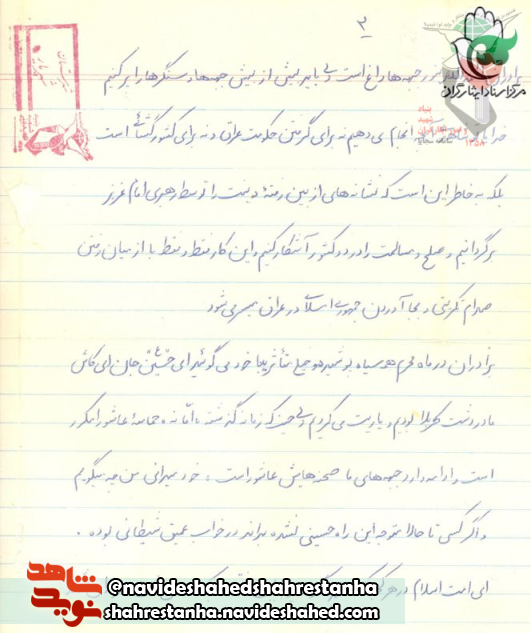 ۳
برادران جبهه‌ها داغ است ولی باید بیش از پیش جبهه‌ها و سنگرها را پر کنیم
خدایا انجام می‌دهیم نه برای گرفتن حکومت عراق و نه برای کشور گشائی است
بلکه به خاطر این است که نشانه‌های از بین رفتهٔ دینت را توسط رهبری امام عزیز
برگردانیم و صلح و مسالمت را در دو کشور آشکار کنیم و این کار فقط و فقط با از میان رفتن
صدام تکریتی و بجا آوردن جمهوری اسلامی در عراق میسر می‌شود
برادران در ماه محرم همه سیاه بوشید خود می‌گوئید ای حسین جان ای کاش
ما در دشت کربلا بودیم و یاریت می‌کردیم ولی حیف که زمانه گذشته، اما نه، حماسهٔ عاشورا مکرر
است و ادامه دارد جبهه‌های ما صحنه‌هایش عاشورا است، خود میدانی من چه میگویم
و اگر کسی تا حالا متوجه این راه حسینی نشده بداند در خواب عمیق شیطانی بوده.
ای امت اسلام در هر
مرکز اسناد ایثارگران
بنیاد شهید
۱۳۵۸
نوید شاهد
©navideshahedshahrestanha
shahrestanha.navideshahed.com